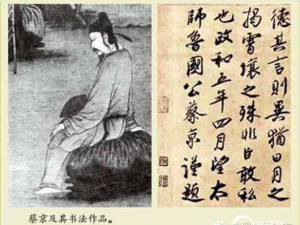 德其言則異猶日月之
揭霄壤之殊非臣敢私
也政和五年四月望太
師魯國公蔡京謹題
蔡京及其书法作品。